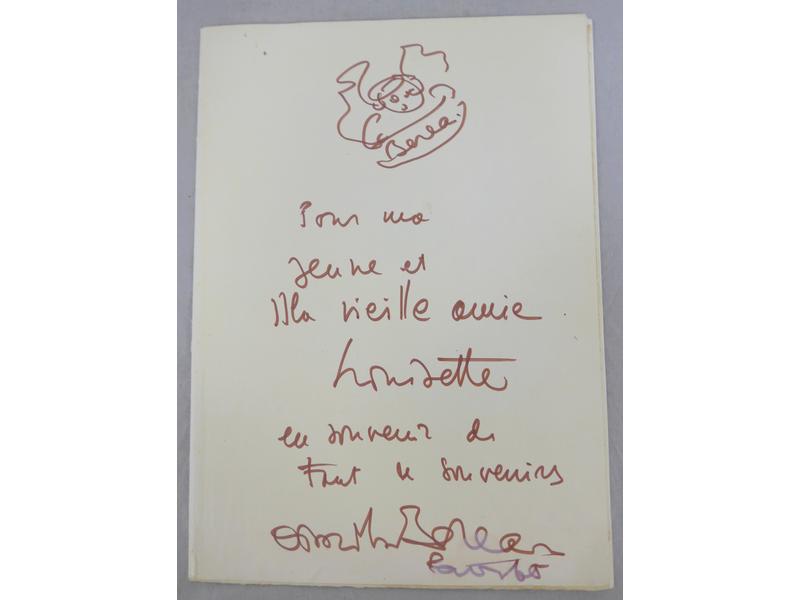 Borea.
Pour ma
jeune et
Ma vieille amie
Louisette
en souvenir de
tant de souvenirs
Borea